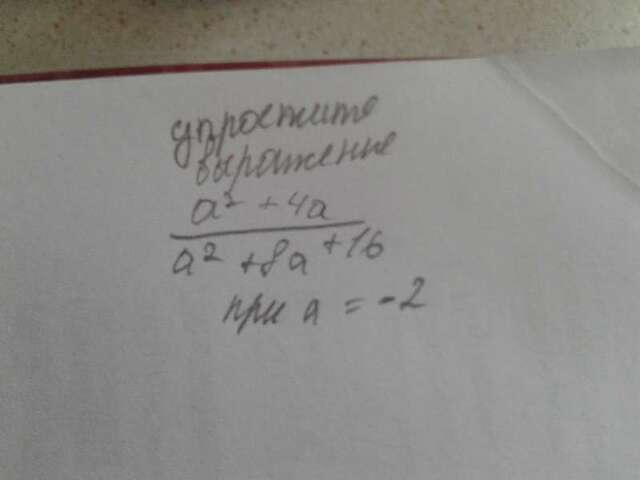 упростите
выражение
a² + 4a
a² + 8a + 16
при a = -2